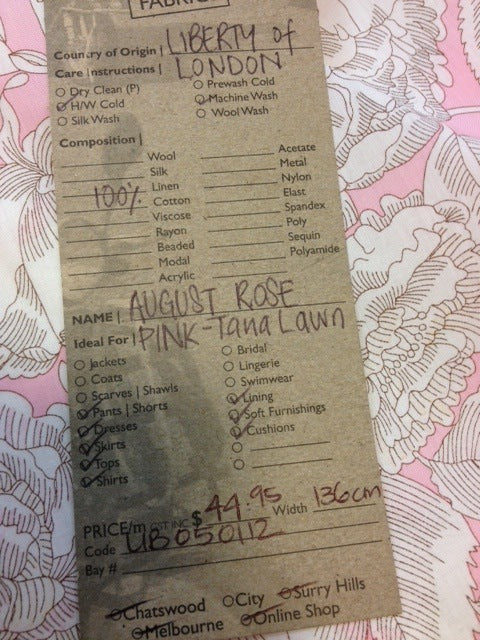 FABRIC
Country of Origin | LIBERTY of
Care Instructions | LONDON
Dry Clean (P) Prewash Cold
H/W Cold Machine Wash
Silk Wash Wool Wash
Composition |
Wool Acetate
Silk Metal
Linen Nylon
100% Cotton Elast
Viscose Spandex
Rayon Poly
Beaded Sequin
Modal Polyamide
Acrylic
NAME | AUGUST ROSE
Ideal For | PINK - Tana Lawn
Jackets Bridal
Coats Lingerie
Scarves | Shawls Swimwear
Pants | Shorts Lining
Dresses Soft Furnishings
Skirts Cushions
Tops
Shirts
PRICE/m GST INC $ 44.95 Width 136cm
Code LIB050112
Bay #
Chatswood City Surry Hills
Melbourne Online Shop